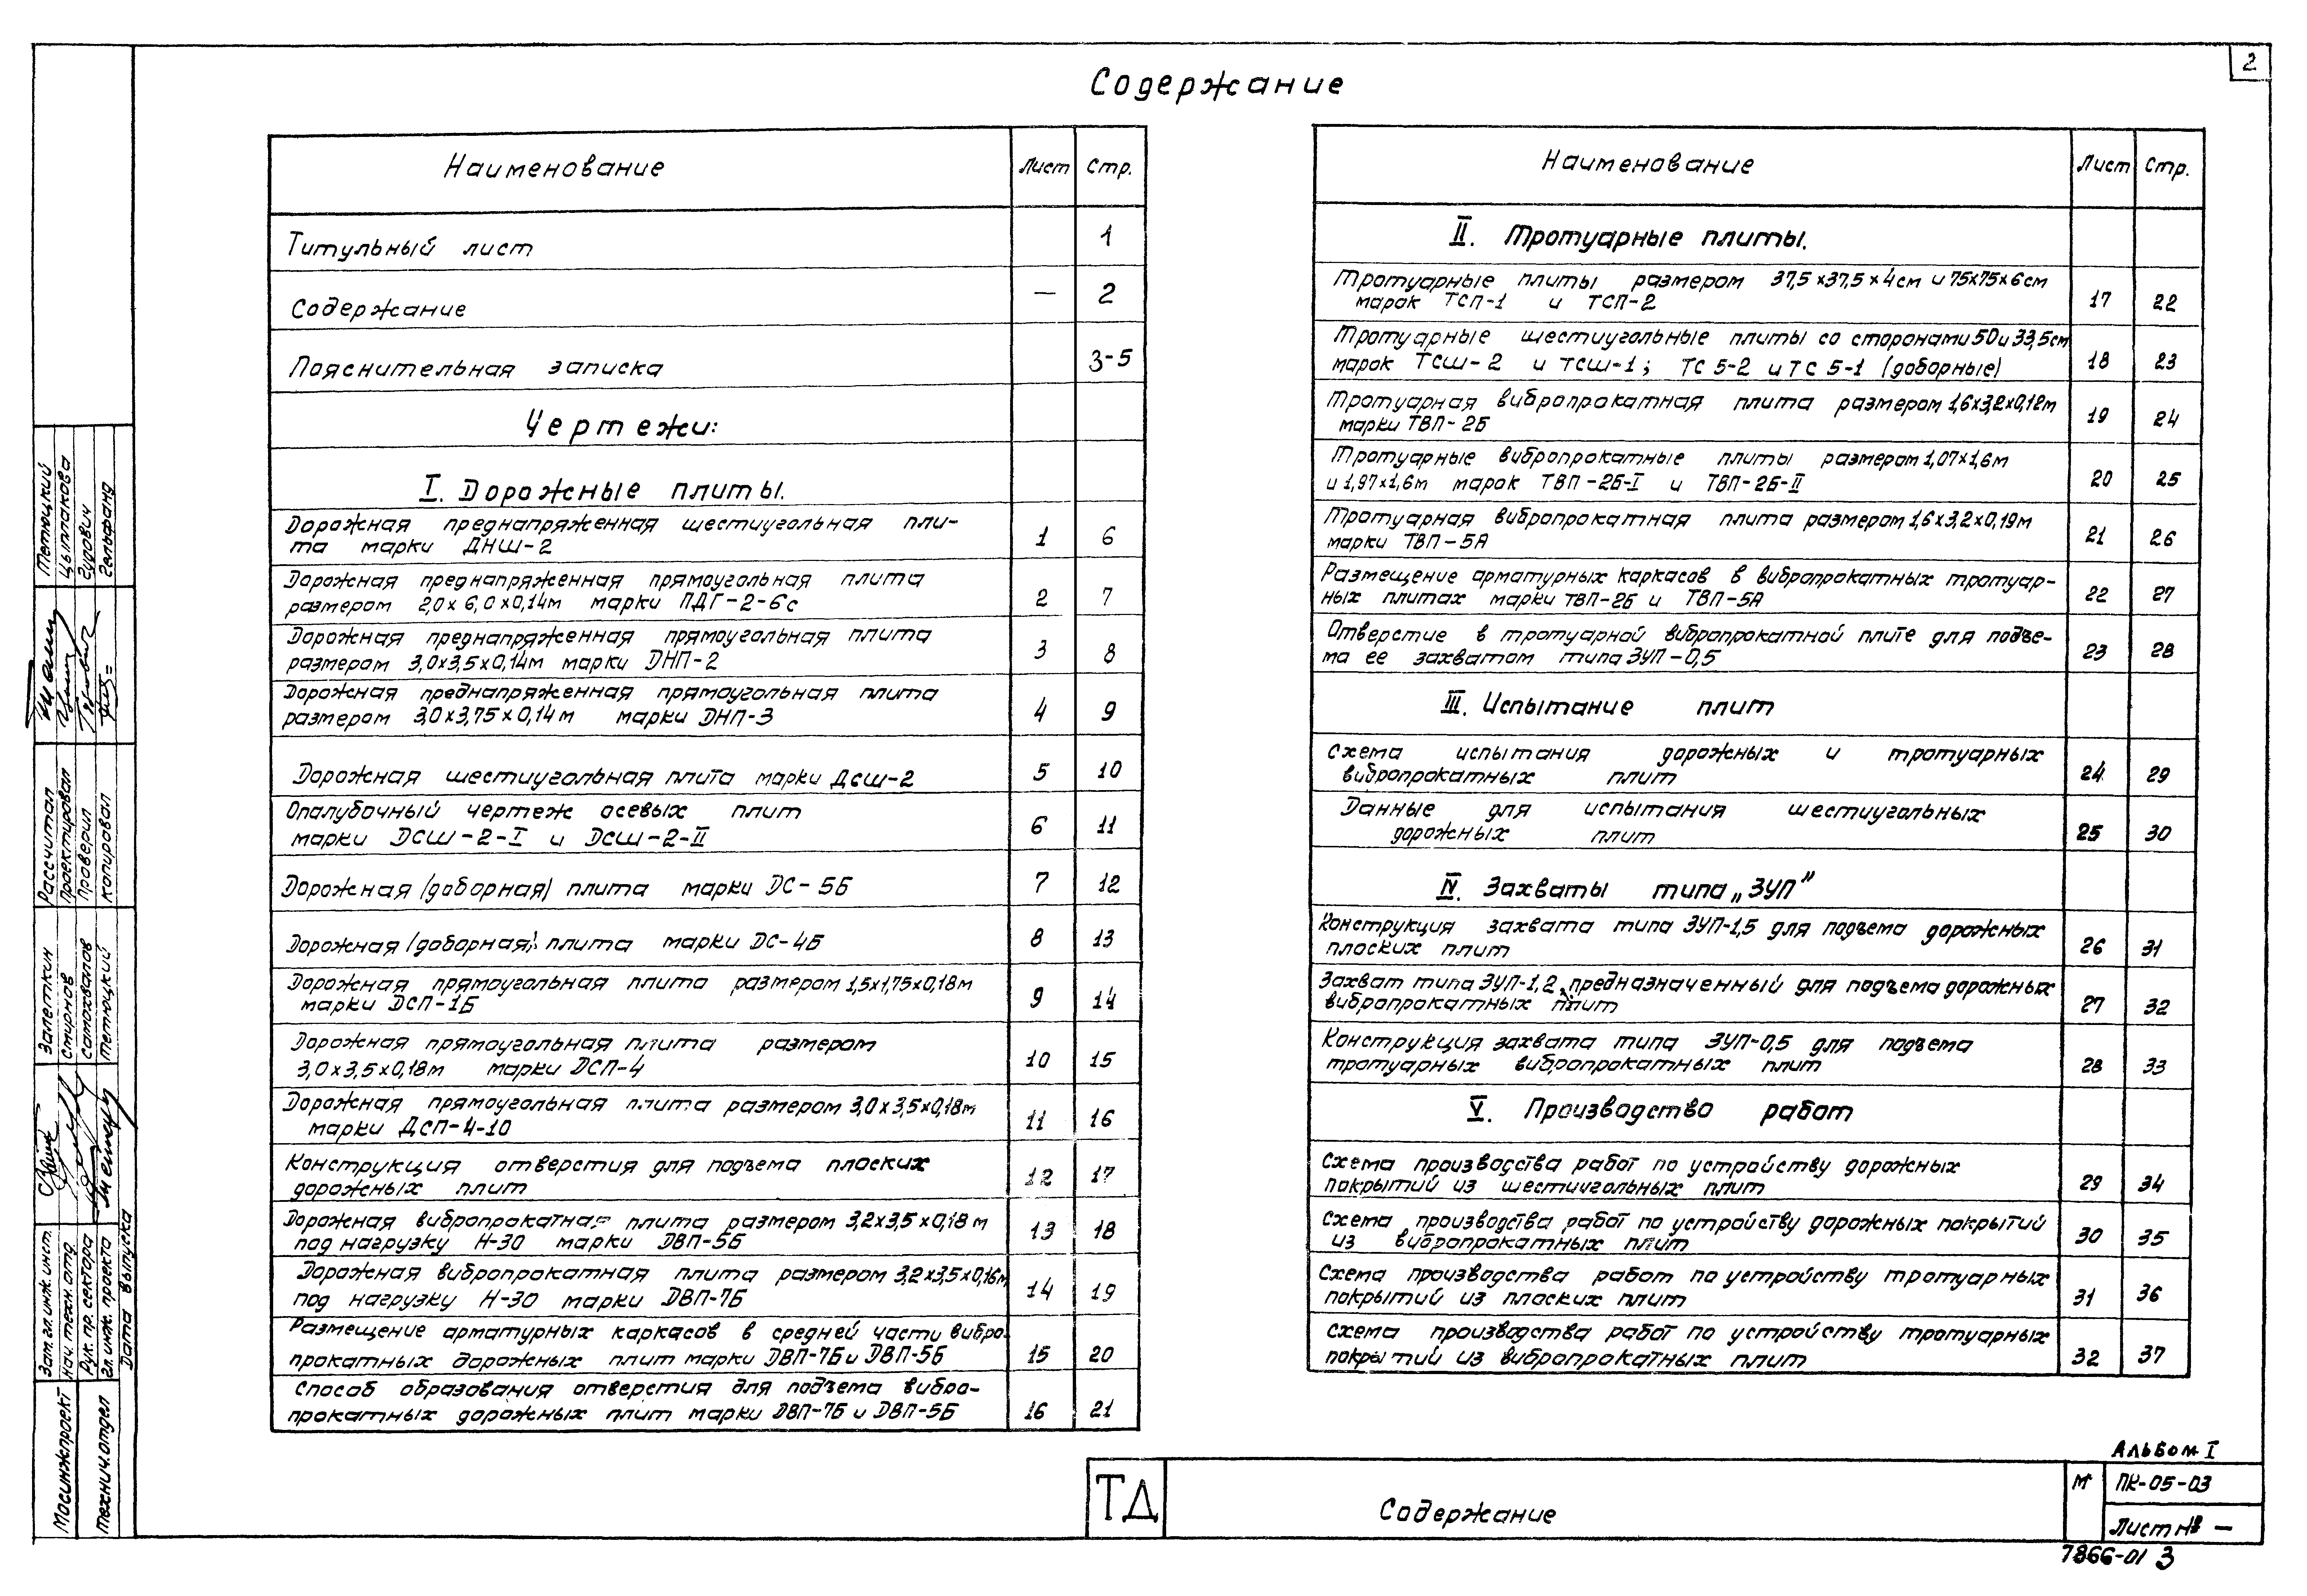 2
Содержание
Наименование Лист Стр.
Титульный лист 1
Содержание — 2
Пояснительная записка 3-5
Чертежи:
I. Дорожные плиты.
Дорожная преднапряженная шестиугольная пли-
та марки ДНШ-2 1 6
Дорожная преднапряженная прямоугольная плита
размером 2,0х6,0х0,14м марки ПДГ-2-6с 2 7
Дорожная преднапряженная прямоугольная плита
размером 3,0х3,5х0,14м марки ДНП-2 3 8
Дорожная преднапряженная прямоугольная плита
размером 3,0х3,75х0,14м марки ДНП-3 4 9
Дорожная шестиугольная плита марки ДСШ-2 5 10
Опалубочный чертеж осевых плит
марки ДСШ-2-I и ДСШ-2-II 6 11
Дорожная (доборная) плита марки ДС-5Б 7 12
Дорожная (доборная) плита марки ДС-4Б 8 13
Дорожная прямоугольная плита размером 1,5х1,75х0,18м
марки ДСП-1Б 9 14
Дорожная прямоугольная плита размером
3,0х3,5х0,18м марки ДСП-4 10 15
Дорожная прямоугольная плита размером 3,0х3,5х0,18м
марки ДСП-4-10 11 16
Конструкция отверстия для подъема плоских
дорожных плит 12 17
Дорожная вибропрокатная плита размером 3,2х3,5х0,18м
под нагрузку Н-30 марки ДВП-5Б 13 18
Дорожная вибропрокатная плита размером 3,2х3,5х0,16м
под нагрузку Н-30 марки ДВП-7Б 14 19
Размещение арматурных каркасов в средней части вибро-
прокатных дорожных плит марки ДВП-7Б и ДВП-5Б 15 20
Способ образования отверстия для подъема вибро-
прокатных дорожных плит марки ДВП-7Б и ДВП-5Б 16 21
Наименование Лист Стр.
II. Тротуарные плиты.
Тротуарные плиты размером 37,5х37,5х4см и 75х75х6см
марок ТСП-1 и ТСП-2 17 22
Тротуарные шестиугольные плиты со сторонами 50 и 33,5см
марок ТСШ-2 и ТСШ-1; ТС 5-2 и ТС 5-1 (доборные) 18 23
Тротуарная вибропрокатная плита размером 1,6х3,2х0,12м
марки ТВП-2Б 19 24
Тротуарные вибропрокатные плиты размером 1,07х1,6м
и 1,97х1,6м марок ТВП-2Б-I и ТВП-2Б-II 20 25
Тротуарная вибропрокатная плита размером 1,6х3,2х0,19м
марки ТВП-5А 21 26
Размещение арматурных каркасов в вибропрокатных тротуар-
ных плитах марки ТВП-2Б и ТВП-5А 22 27
Отверстие в тротуарной вибропрокатной плите для подъе-
ма ее захватом типа ЗУП-0,5 23 28
III. Испытание плит
Схема испытания дорожных и тротуарных
вибропрокатных плит 24 29
Данные для испытания шестиугольных
дорожных плит 25 30
IV. Захваты типа „ЗУП"
Конструкция захвата типа ЗУП-1,5 для подъема дорожных
плоских плит 26 31
Захват типа ЗУП-1,2, предназначенный для подъема дорожных
вибропрокатных плит 27 32
Конструкция захвата типа ЗУП-0,5 для подъема
тротуарных вибропрокатных плит 28 33
V. Производство работ
Схема производства работ по устройству дорожных
покрытий из шестиугольных плит 29 34
Схема производства работ по устройству дорожных покрытий
из вибропрокатных плит 30 35
Схема производства работ по устройству тротуарных
покрытий из плоских плит 31 36
Схема производства работ по устройству тротуарных
покрытий из вибропрокатных плит 32 37
Альбом I
ТД
Содержание
М
ПК-05-03
Лист № —
7866-01 3
Мосинжпроект
Технич. отдел
Зам. гл. инж. инст. Залеткин
Нач. техн. отд. Смирнов
Рук. пр. сектора Самохвалов
Гл. инж. проекта Петюцкий
Дата выпуска
Рассчитал Петюцкий
Проектировал Цыплакова
Проверил Гурович
Копировал Гельфанд